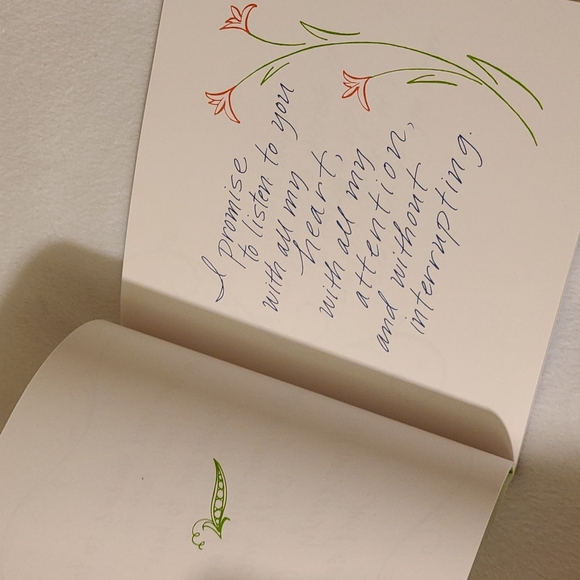 I promise
to listen to you
with all my
heart,
with all my
attention,
and without
interrupting.